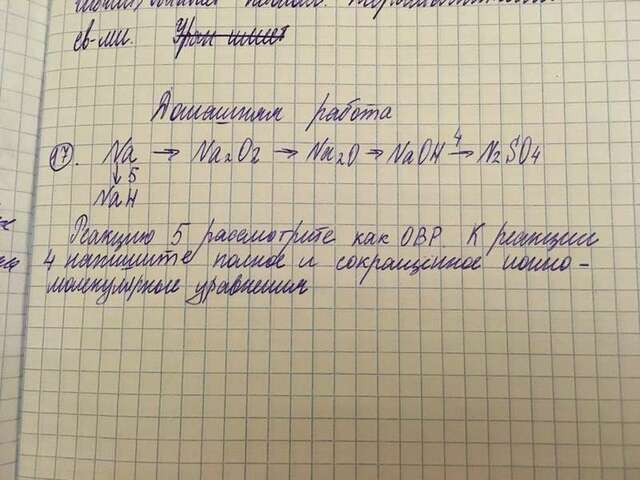 св-ми.
Домашняя работа
17. Na → Na2O2 → Na2O → NaOH 4→ N2SO4
↓ 5
NaH
Реакцию 5 рассмотрите как ОВР. К реакции
4 напишите полное и сокращённое ионно-
молекулярное уравнения